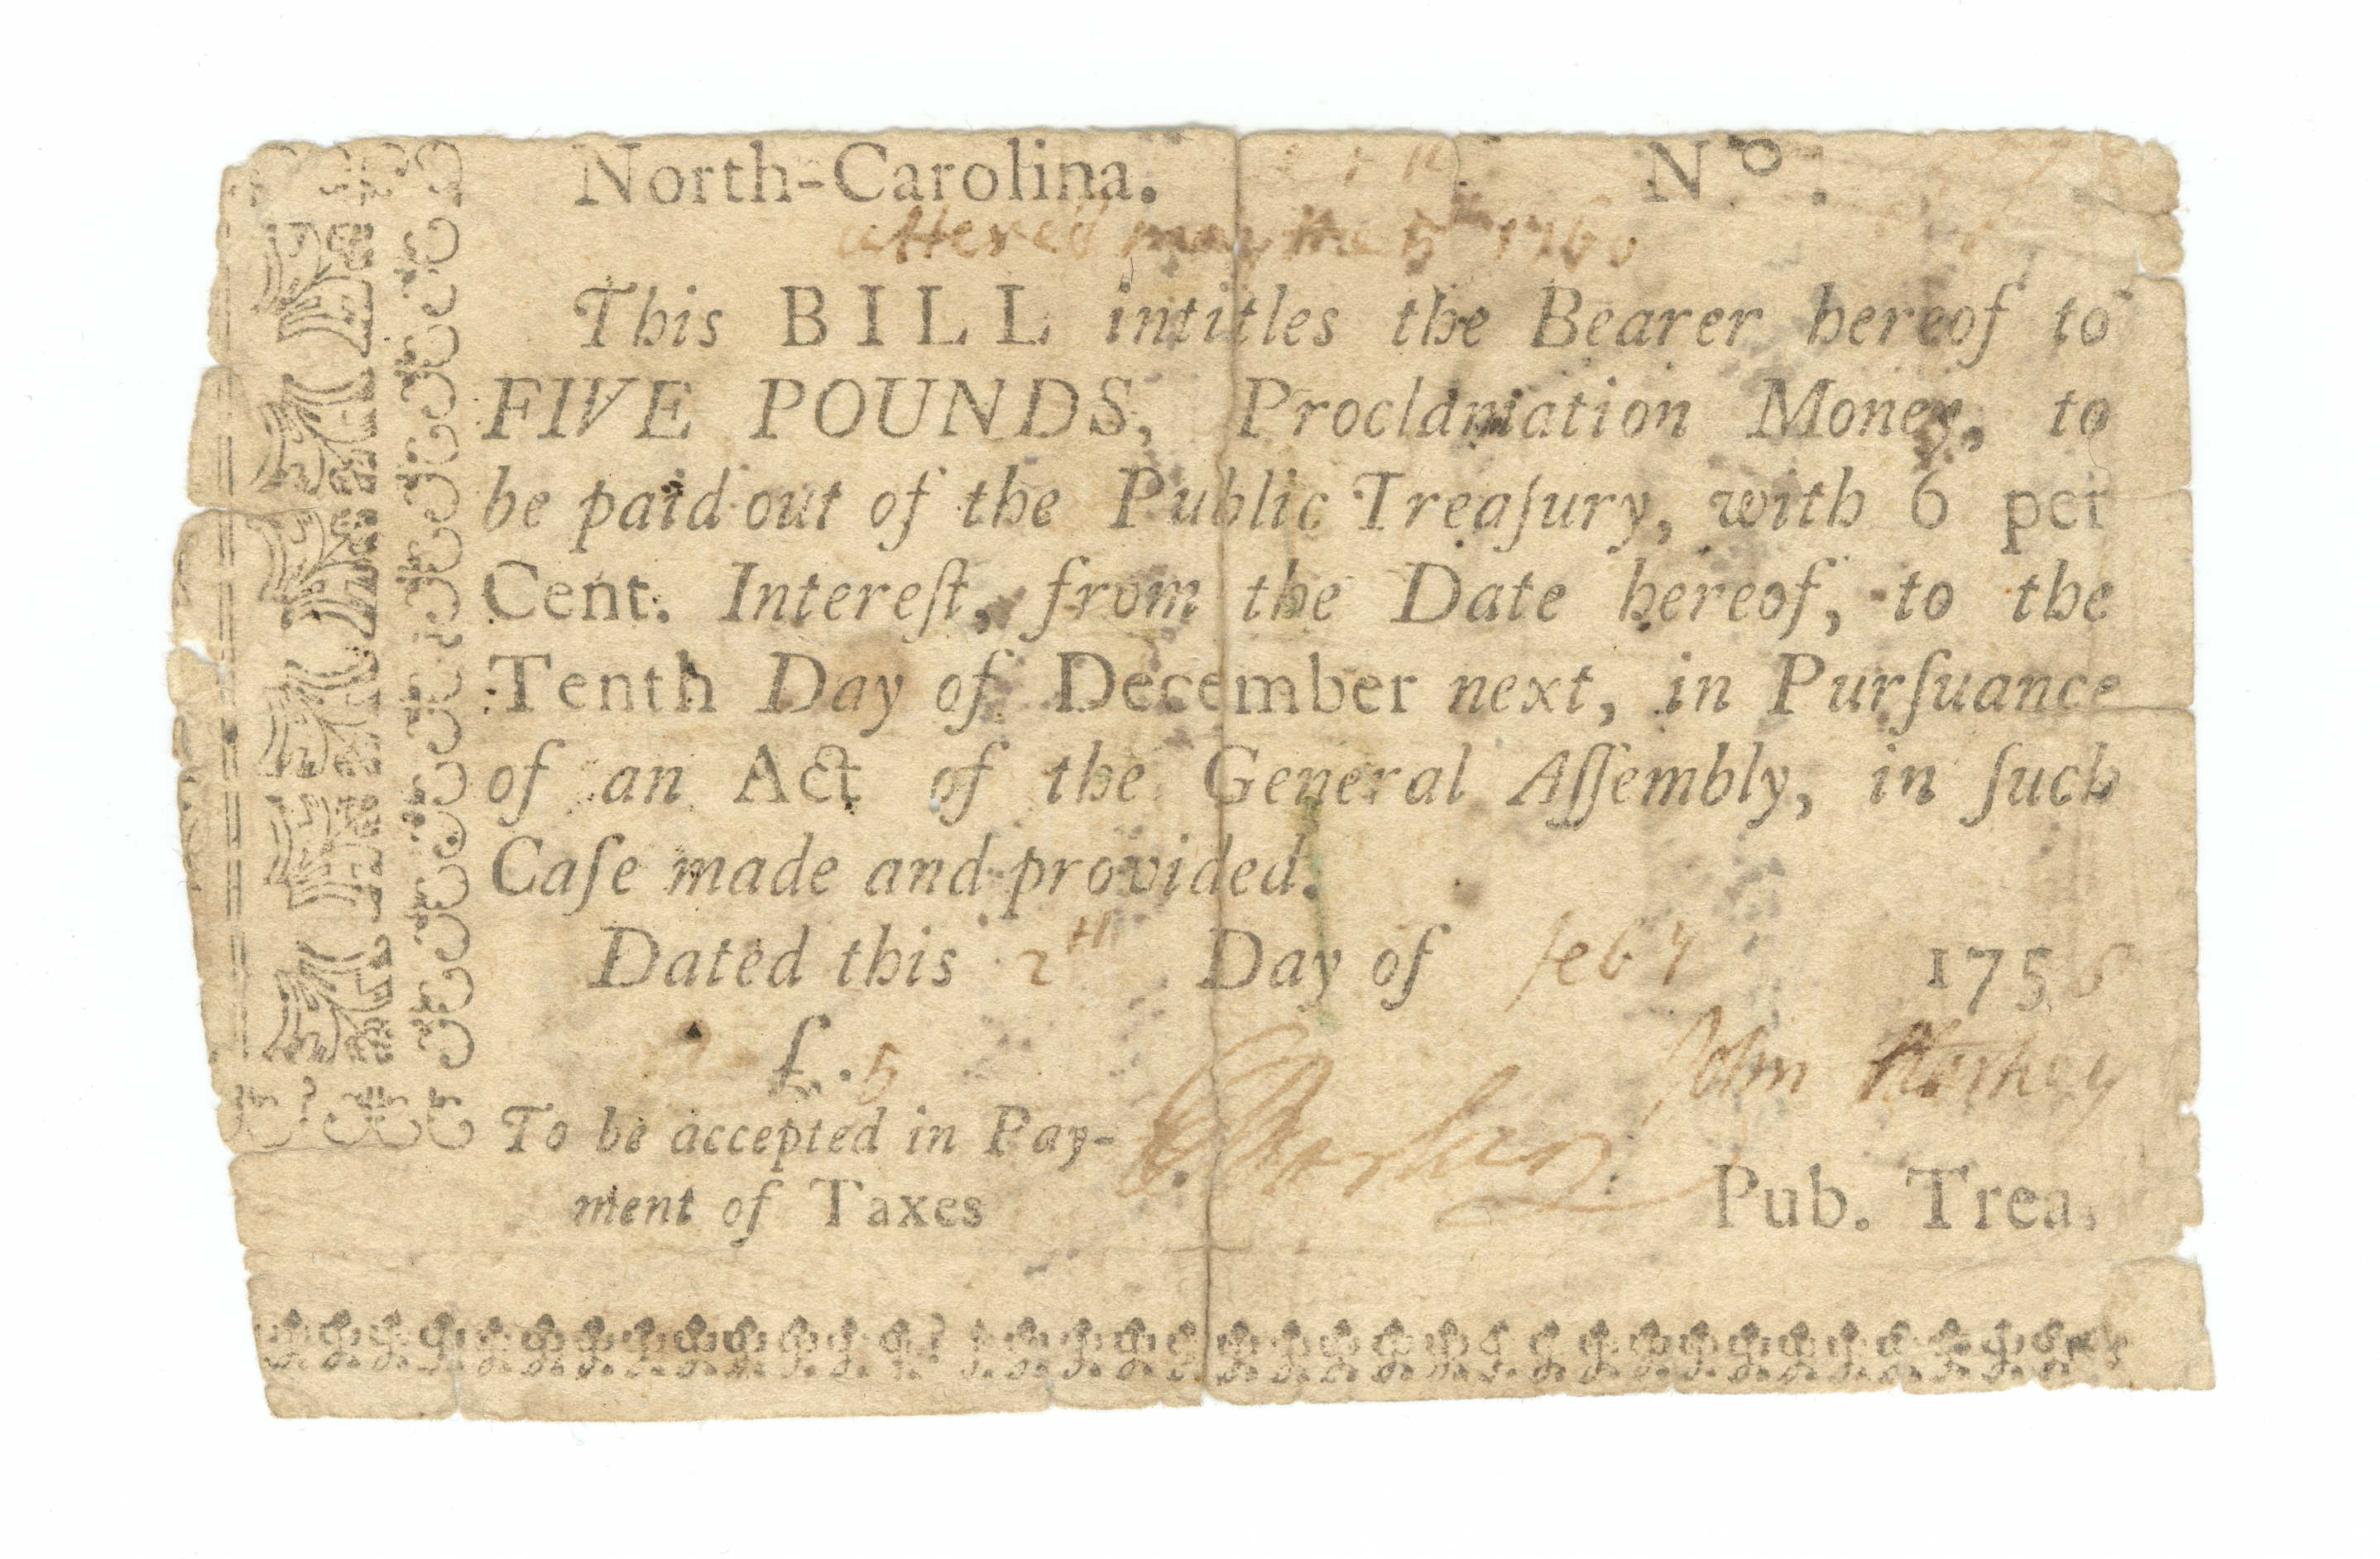 North-Carolina. No.
altered may the 5th 1760
This BILL intitles the Bearer hereof to
FIVE POUNDS, Proclamation Money, to
be paid out of the Public Treaſury, with 6 per
Cent. Intereſt, from the Date hereof, to the
Tenth Day of December next, in Purſuance
of an Act of the General Aſſembly, in ſuch
Caſe made and provided.
Dated this 2th Day of feby 175
£.5
John Starkey
To be accepted in Pay-
ment of Taxes
Pub. Trea.